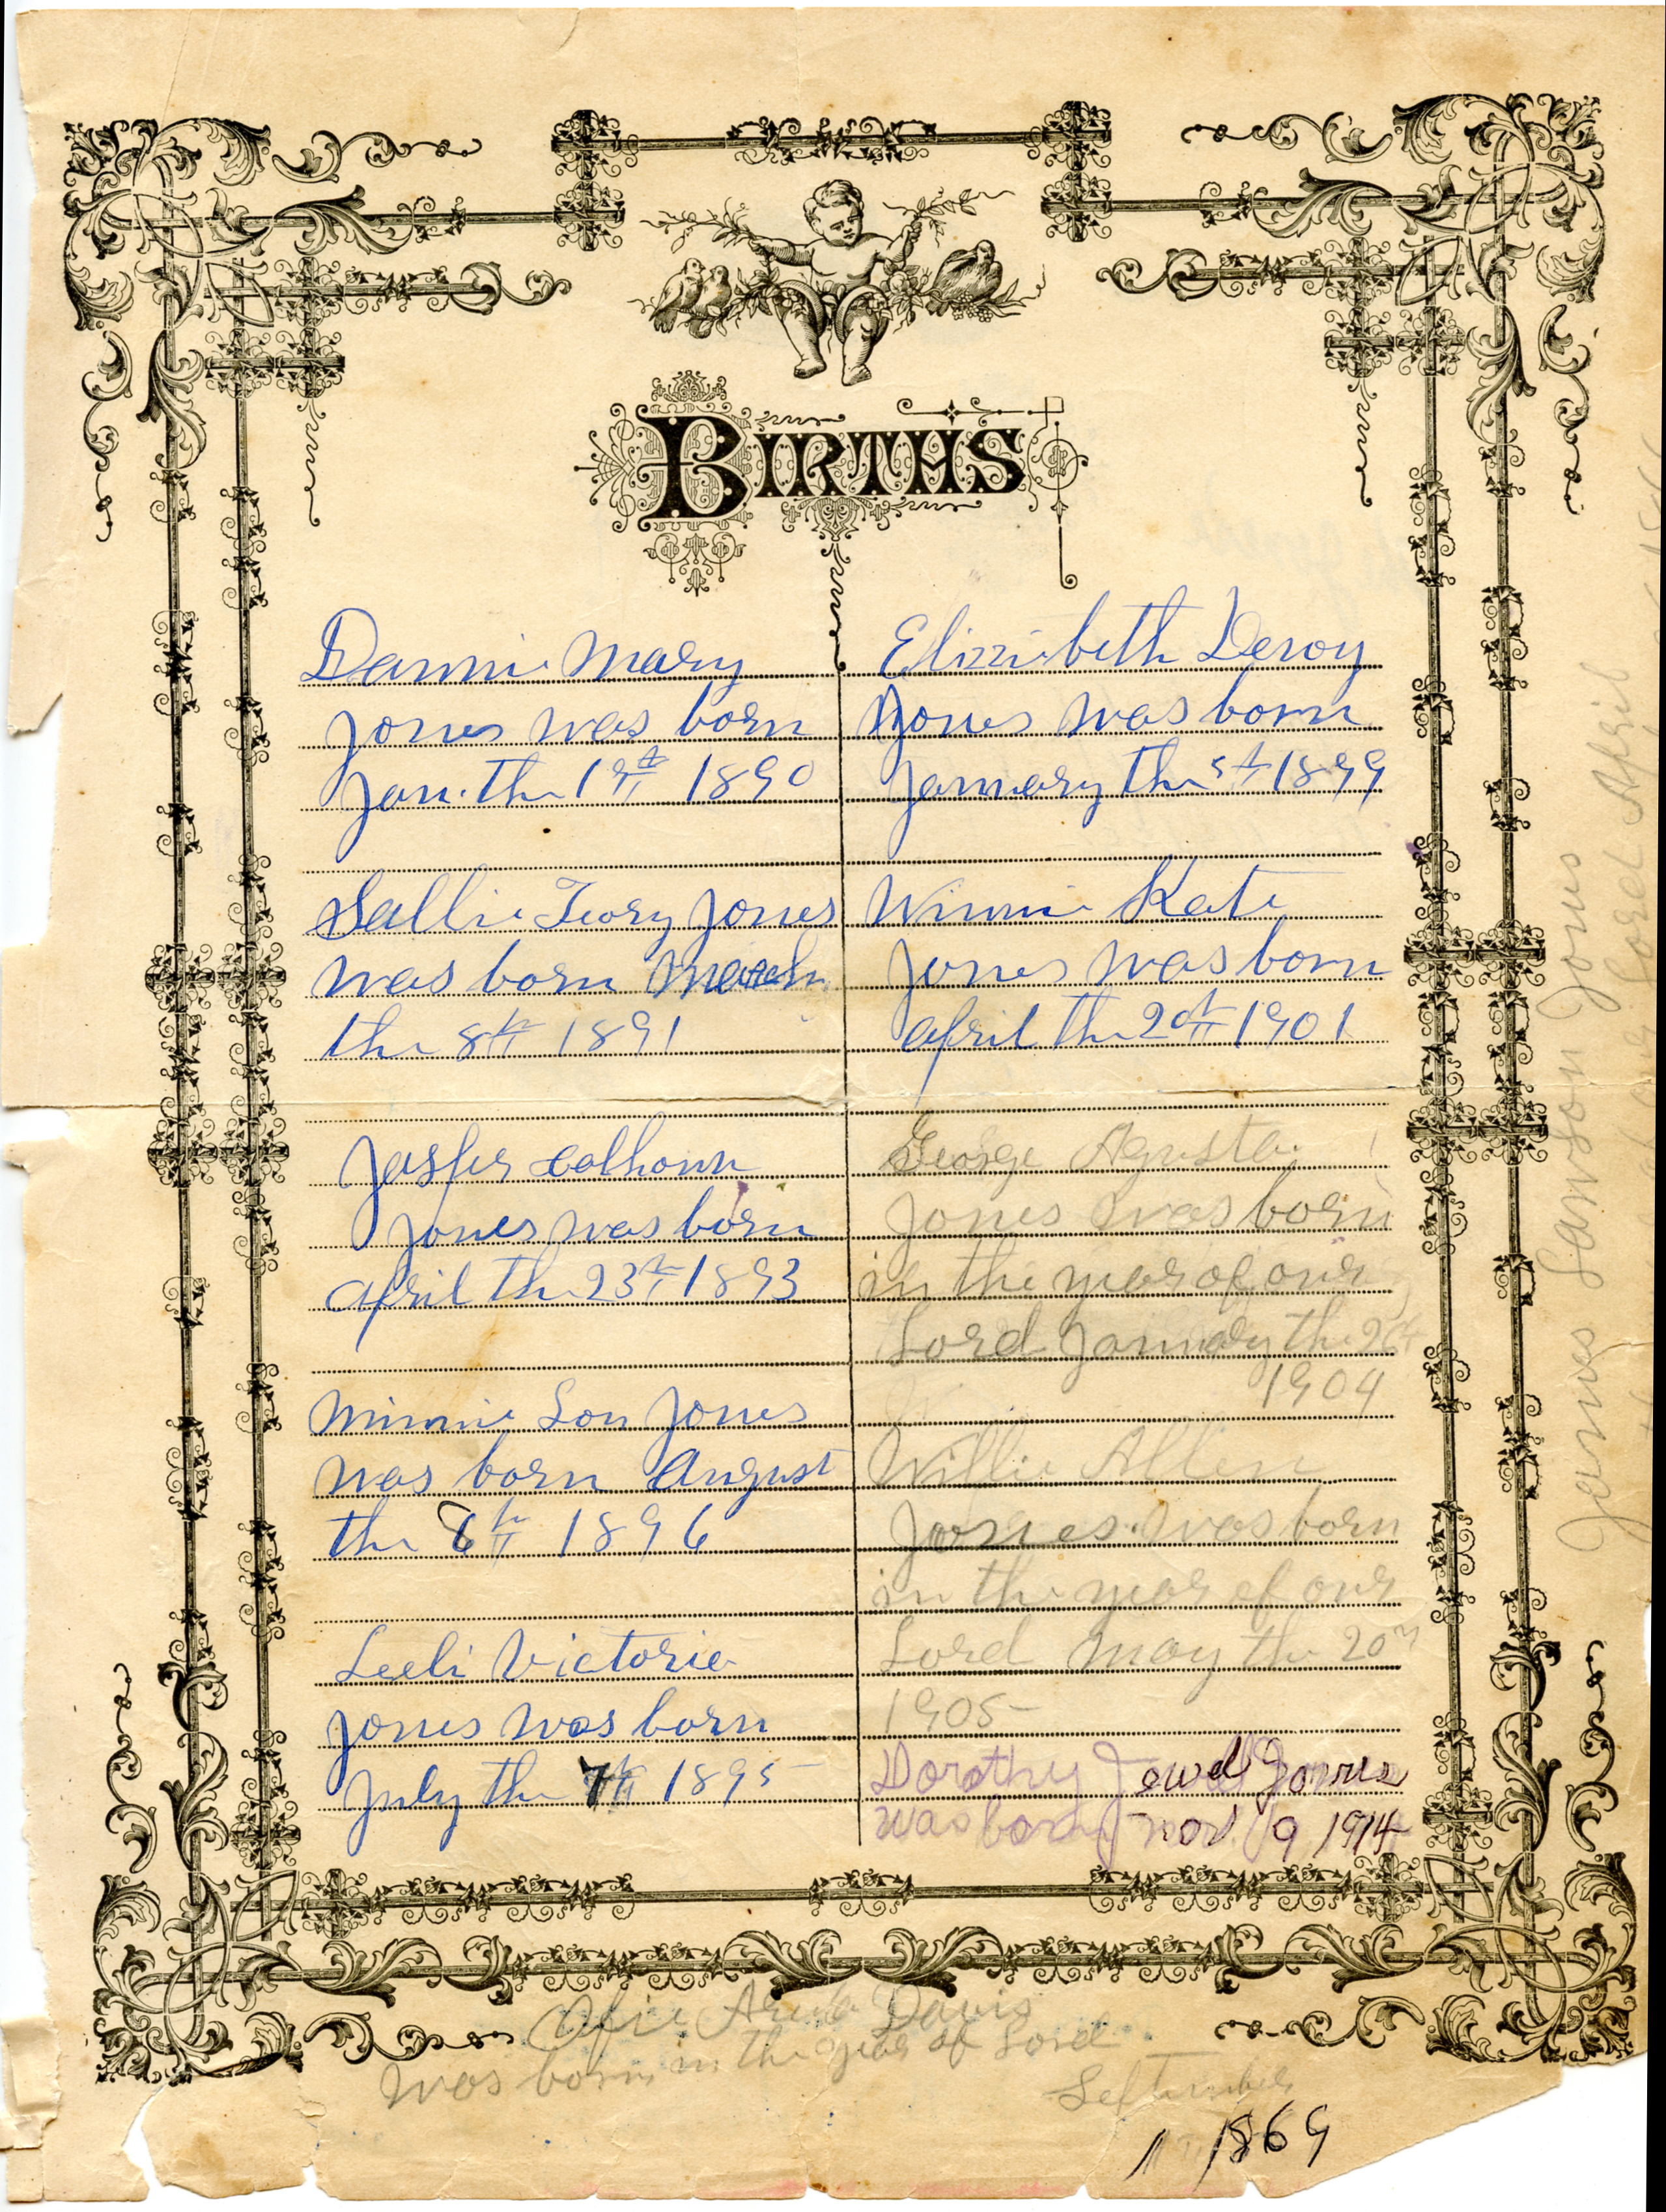 BIRTHS
Dannie Mary
Jones was born
Jan. the 19th 1890
Sallie Ivory Jones
was born March
the 8th 1891
Jasper Calhoun
Jones was born
April the 23th 1893
Minnie Lou Jones
was born August
the 6th 1896
Leeli Victorie
Jones was born
July the 7th 1895
Elizzibeth Deroy
Jones was born
January the 5th 1899
Winnie Kate
Jones was born
April the 20th 1901
George Agusta
Jones was born
in the year of our
Lord January the 26th
1904
Willie Allen
Jones was born
in the year of our
Lord May the 20th
1905
Dorothy Jewel Jones
was born Nov 9 1914
Davis
was born in the year of Lord
September
1 1869
James Lawson Jones
of our Lord April